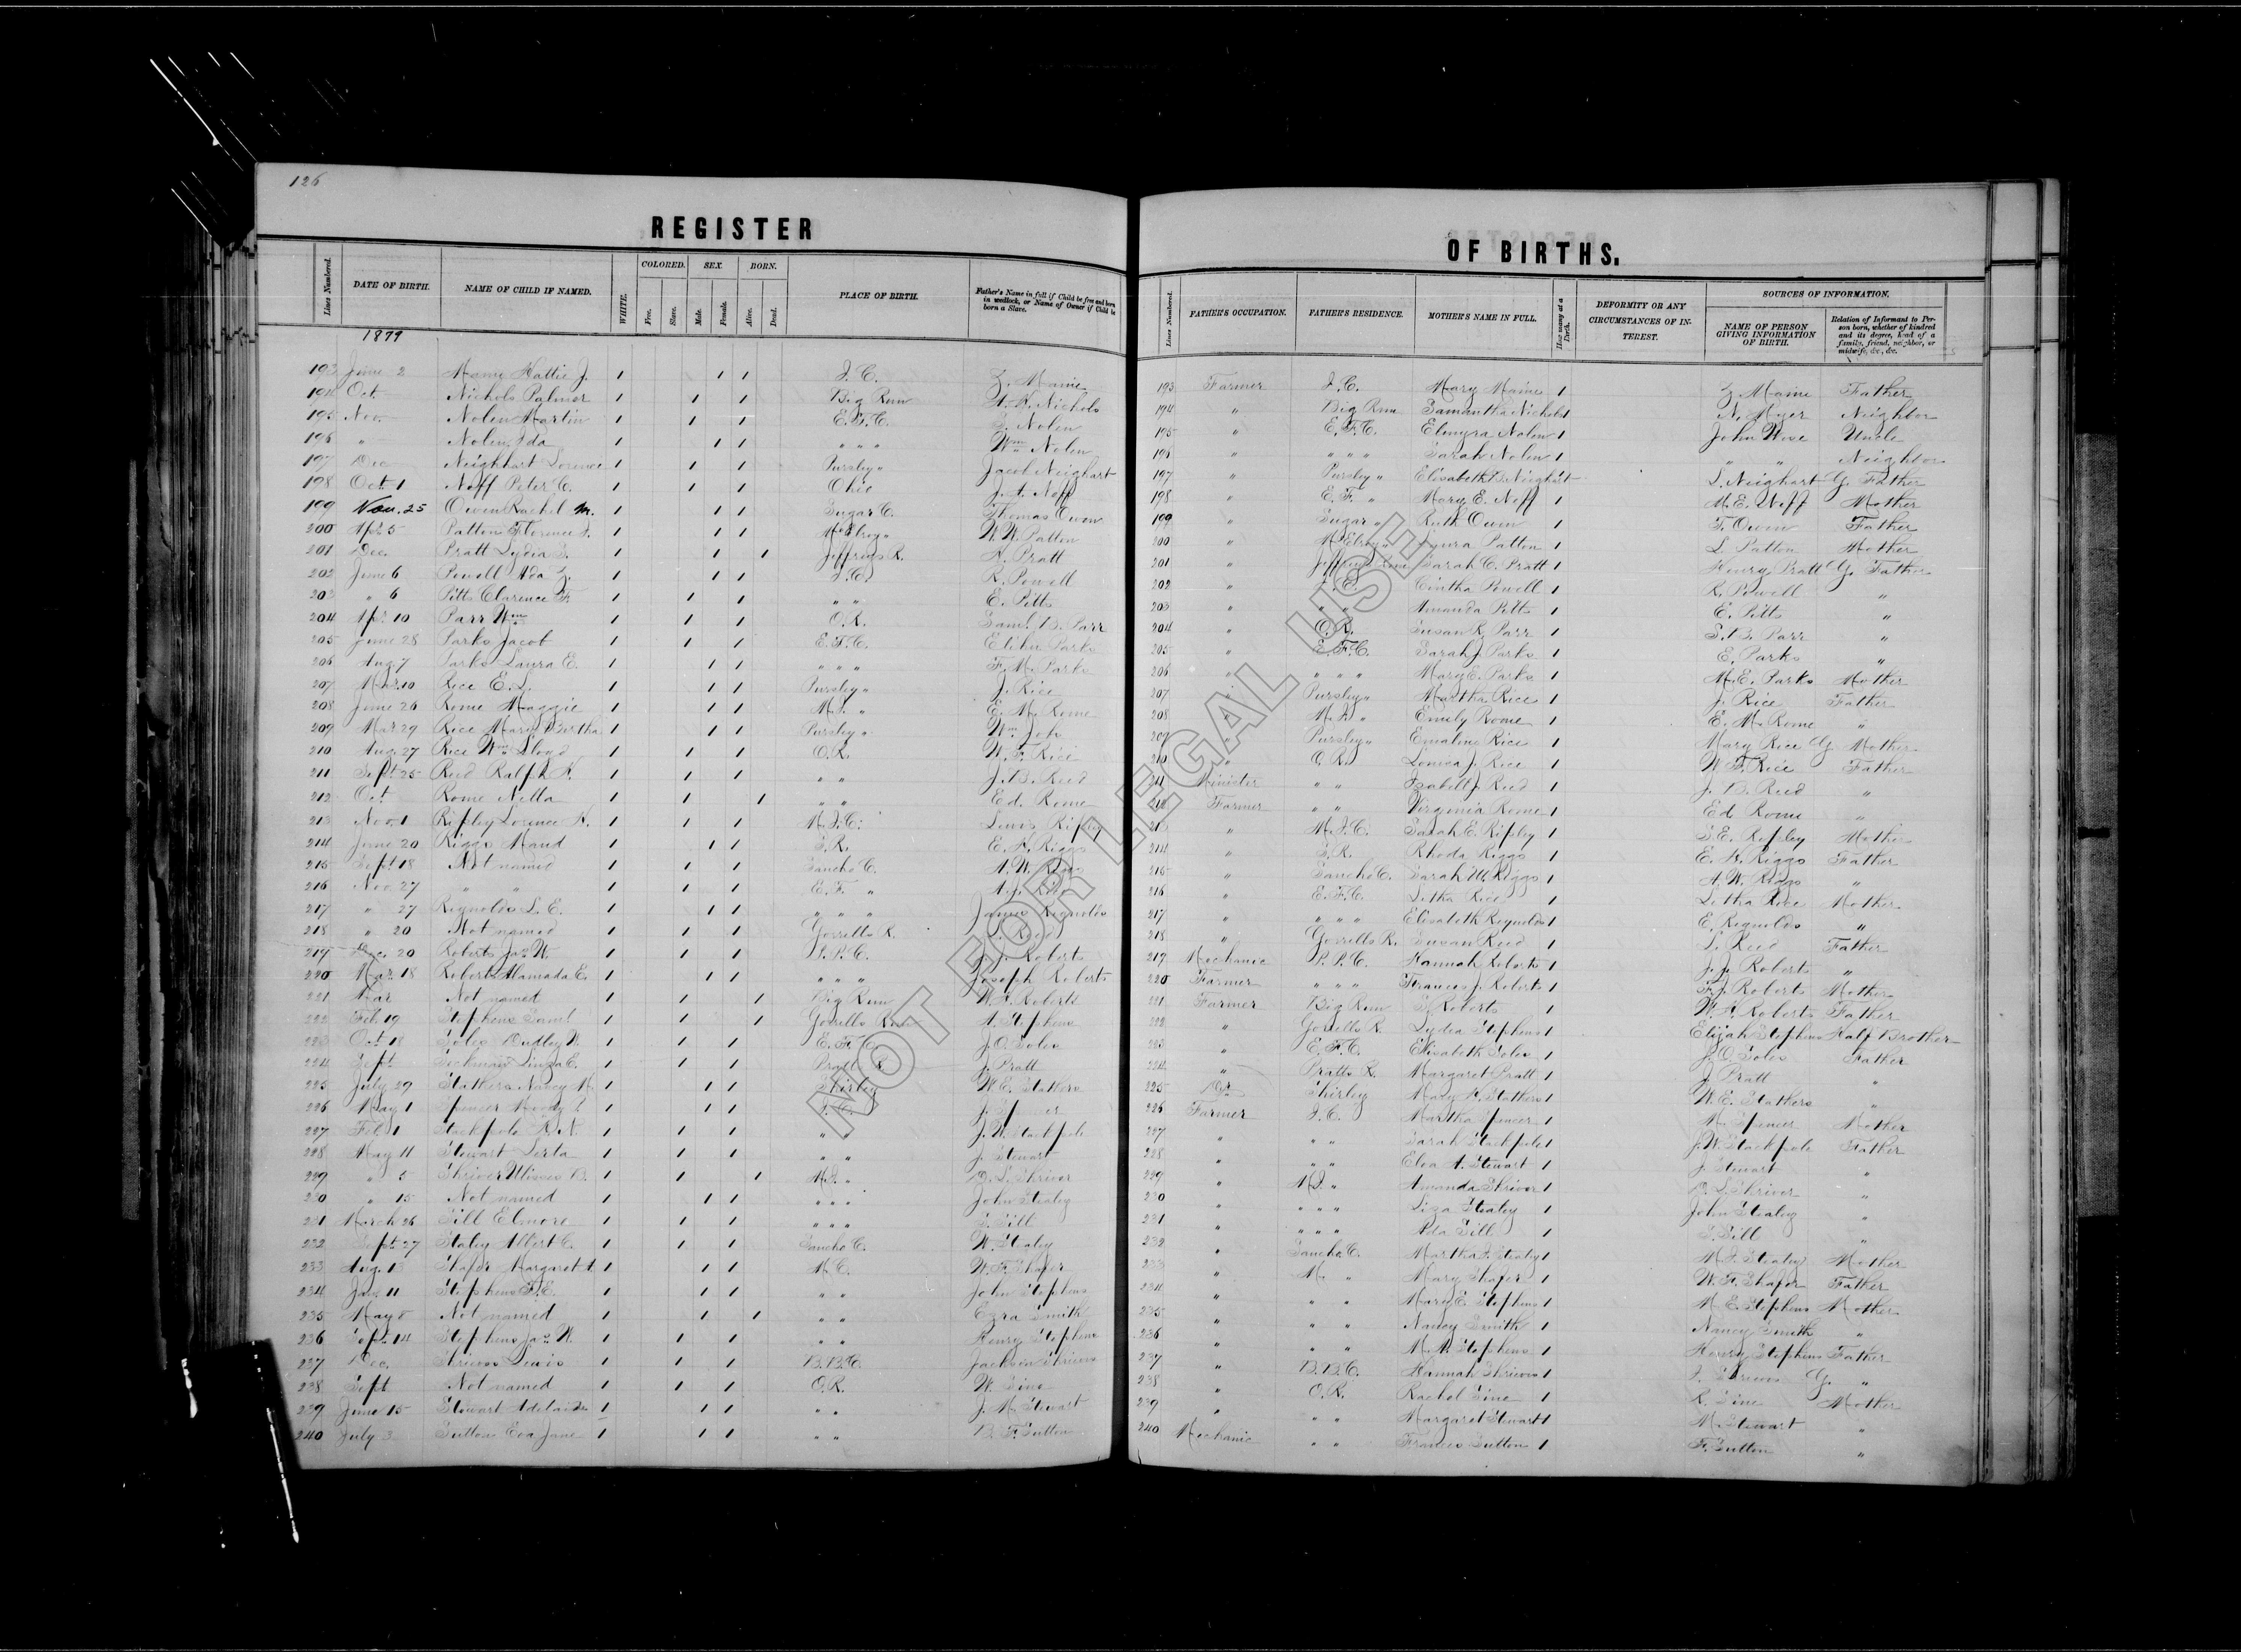 126
REGISTER
OF BIRTHS.
Lines Numbered.
DATE OF BIRTH.
NAME OF CHILD IF NAMED.
WHITE.
COLORED.
Free.
Slave.
SEX.
Male.
Female.
BORN.
Alive.
Dead.
PLACE OF BIRTH.
Father's Name in full if Child be free and born in wedlock, or Name of Owner if Child be born a Slave.
Lines Numbered.
FATHER'S OCCUPATION.
FATHER'S RESIDENCE.
MOTHER'S NAME IN FULL.
How many at a Birth.
DEFORMITY OR ANY CIRCUMSTANCES OF INTEREST.
SOURCES OF INFORMATION.
NAME OF PERSON GIVING INFORMATION OF BIRTH.
Relation of Informant to Person born, whether of kindred and its degree, head of a family, friend, neighbor, or midwife, &c., &c.
1879
193 June 2 Hattie J. 1 1 1 Z. Maine 193 Farmer Mary Maine 1 Z. Maine Father
194 Oct. Nichols Palmer 1 1 1 Big Run A. H. Nichols 194 " Big Run Samantha Nichols 1 N. Myer Neighbor
195 Nov. Nolen Martin 1 1 1 E. F. C. Nolen 195 " E. F. C. Elmyra Nolen 1 John Wise Uncle
196 " Nolen Ida 1 1 1 " " " Wm Nolen 196 " " " " Sarah Nolen 1 " " Neighbor
197 Dec Neighhart Lorence 1 1 1 Pursley " Jacob Neighart 197 " Pursley " Elisabeth B. Neighart S. Neighart G. Father
198 Oct. 1 Neff Peter C. 1 1 1 Ohio J. A. Neff 198 " E. F. " Mary E. Neff 1 M. E. Neff Mother
199 Nov. 25 Owen Rachel M. 1 1 1 Sugar C. Thomas Owen 199 " Sugar " Ruth Owen 1 T. Owen Father
200 Apr. 5 Patton Florence 1 1 1 McElroy " W. W. Patton 200 " McElroy " Patton 1 L. Patton Mother
201 Dec. Pratt Lydia S. 1 1 1 Jeffries R. H. Pratt 201 " Sarah C. Pratt 1 Henry Pratt G. Father
202 June 6 Powell Ada Z. 1 1 1 R. Powell 202 " Cintha Powell 1 R. Powell "
203 " 6 Pitts Clarence F. 1 1 1 " " E. Pitts 203 " " " Amanda Pitts 1 E. Pitts "
204 Apr. 10 Parr Wm 1 1 1 O. R. Saml. B. Parr 204 " O. R. Susan R. Parr 1 S. B. Parr "
205 June 28 Parks Jacob 1 1 1 E. F. C. Elihu Parks 205 " E. F. C. Sarah J. Parks 1 E. Parks "
206 Aug. 7 Parks Laura E. 1 1 1 " " " F. M. Parks 206 " " " " Mary E. Parks 1 M. E. Parks Mother
207 Mar. 10 Rice E. L. 1 1 1 Pursley " J. Rice 207 " Pursley " Martha Rice 1 J. Rice Father
208 June 26 Rome Maggie 1 1 1 E. M. Rome 208 " Emily Rome 1 E. M. Rome "
209 Mar 29 Rice Mary Bertha 1 1 1 Pursley " Wm Job 209 " Pursley " Emaline Rice 1 Mary Rice G. Mother
210 Aug. 27 Rice Wm Lloyd 1 1 1 O. R. W. F. Rice 210 " O. R. Louisa J. Rice 1 W. F. Rice Father
211 Sept. 25 Reed Ralph H. 1 1 1 " " J. B. Reed 211 Minister " " Isabell J. Reed 1 J. B. Reed "
212 Oct. Rome Nella 1 1 1 " " Ed. Rome 212 Farmer " " Virginia Rome 1 Ed Rome "
213 Nov. 1 Ripley Lorence H. 1 1 1 M. I. C. Lewis Ripley 213 " M. I. C. Sarah E. Ripley 1 S. E. Ripley Mother
214 June 20 Riggs Maud 1 1 1 S. R. E. H. Riggs 214 " S. R. Rhoda Riggs 1 E. H. Riggs Father
215 Sept. 18 Not named 1 1 1 Sancho C. A. W. Riggs 215 " Sancho C. Sarah W. Riggs 1 A. W. Riggs "
216 Nov. 27 " " 1 1 1 E. F. " A. J. Rice 216 " E. F. C. Letha Rice 1 Letha Rice Mother
217 " 27 Reynolds L. E. 1 1 1 " " " James Reynolds 217 " " " " Elisabeth Reynolds 1 E. Reynolds "
218 " 20 Not named 1 1 1 Gorrells R. Reed 218 " Gorrells R. Susan Reed 1 Reed Father
219 Dec. 20 Roberts Jas. W. 1 1 1 P. P. C. J. J. Roberts 219 Mechanic P. P. C. Hannah Roberts 1 J. J. Roberts "
220 Mar. 18 Roberts Alamada E. 1 1 1 " " " Joseph Roberts 220 Farmer " " " Frances J. Roberts 1 F. J. Roberts Mother
221 Mar Not named 1 1 1 Big Run W. H. Roberts 221 Farmer Big Run S. Roberts 1 W. H. Roberts Father
222 Feb. 19 Stephens Saml 1 1 1 Gorrells Run A. Stephens 222 " Gorrells R. Lydia Stephens 1 Elijah Stephens Half Brother
223 Oct 18 Soles Dudley W. 1 1 1 E. F. C. J. O. Soles 223 " E. F. C. Elisabeth Soles 1 J. O. Soles Father
224 Sept 1 1 1 Pratts R. J. Pratt 224 " Pratts R. Margaret Pratt 1 J. Pratt "
225 July 29 Stathers Nancy M. 1 1 1 Shirley W. E. Stathers 225 Dr. Shirley Mary H. Stathers 1 W. E. Stathers "
226 May 1 Spencer 1 1 1 J. Spencer 226 Farmer I. C. Martha Spencer 1 M. Spencer Mother
227 Feb 1 Stackpole R. N. 1 1 1 " " J. W. Stackpole 227 " " " Sarah Stackpole 1 J. W. Stackpole Father
228 May 11 Stewart 1 1 1 " " J. Stewart 228 " " " A. Stewart 1 J. Stewart "
229 " 5 Shriver Ulisses B. 1 1 1 D. L. Shriver 229 " Amanda Shriver 1 D. L. Shriver "
230 " 15 Not named 1 1 1 " " " John Stealey 230 " " " " Liza Stealey 1 John Stealey "
231 March 26 Sill Elmore 1 1 1 " " " S. Sill 231 " " " " Ada Sill 1 S. Sill "
232 Sept. 27 Staley Albert C. 1 1 1 Sancho C. W. Stealey 232 " Sancho C. Martha J. Stealey 1 Stealey Mother
233 Aug. 13 Shafer Margaret A. 1 1 1 M. C. W. F. Shafer 233 " M. " Mary Shafer 1 W. F. Shafer Father
234 Jan. 11 Stephens F. E. 1 1 1 " " John Stephens 234 " " " Mary E. Stephens 1 M. E. Stephens Mother
235 May 8 Not named 1 1 1 " " Ezra Smith 235 " " " Nancy Smith 1 Nancy Smith "
236 Sept. 14 Stephens Jas. W. 1 1 1 " " Henry Stephens 236 " " " M. A. Stephens 1 Henry Stephens Father
237 Dec. Lewis 1 1 1 B. B. C. Jackson 237 " B. B. C. Hannah 1 G. "
238 Sept Not named 1 1 1 O. R. W. Sine 238 " O. R. Rachel Sine 1 R. Sine Mother
239 June 15 Stewart Adelaide 1 1 1 " " J. M. Stewart 239 " " " Margaret Stewart 1 M. Stewart "
240 July 3 Sutton Eva Jane 1 1 1 " " B. F. Sutton 240 Mechanic " " Frances Sutton 1 F. Sutton "
NOT FOR LEGAL USE